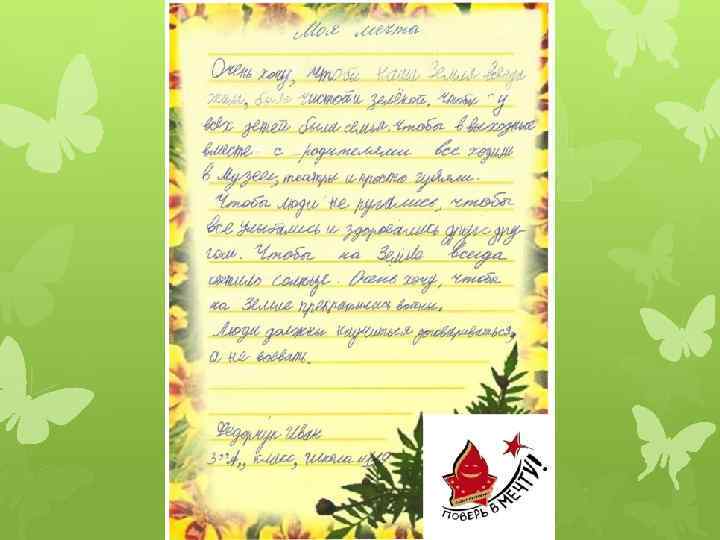 Моя мечта
Очень хочу, чтобы наша Земля, всегда
была чистой и зелёной. Чтобы у
всех детей была семья. Чтобы в выходные
вместе с родителями все ходили
в музеи, театры и просто гуляли.
Чтобы люди не ругались, чтобы
все улыбались и здоровались друг с дру-
гом. Чтобы на Земле всегда
светило солнце. Очень хочу, чтобы
на Земле прекратились войны.
Люди должны научиться договариваться,
а не воевать.
Иван
3 "А" класс, школа
ПОВЕРЬ В МЕЧТУ!